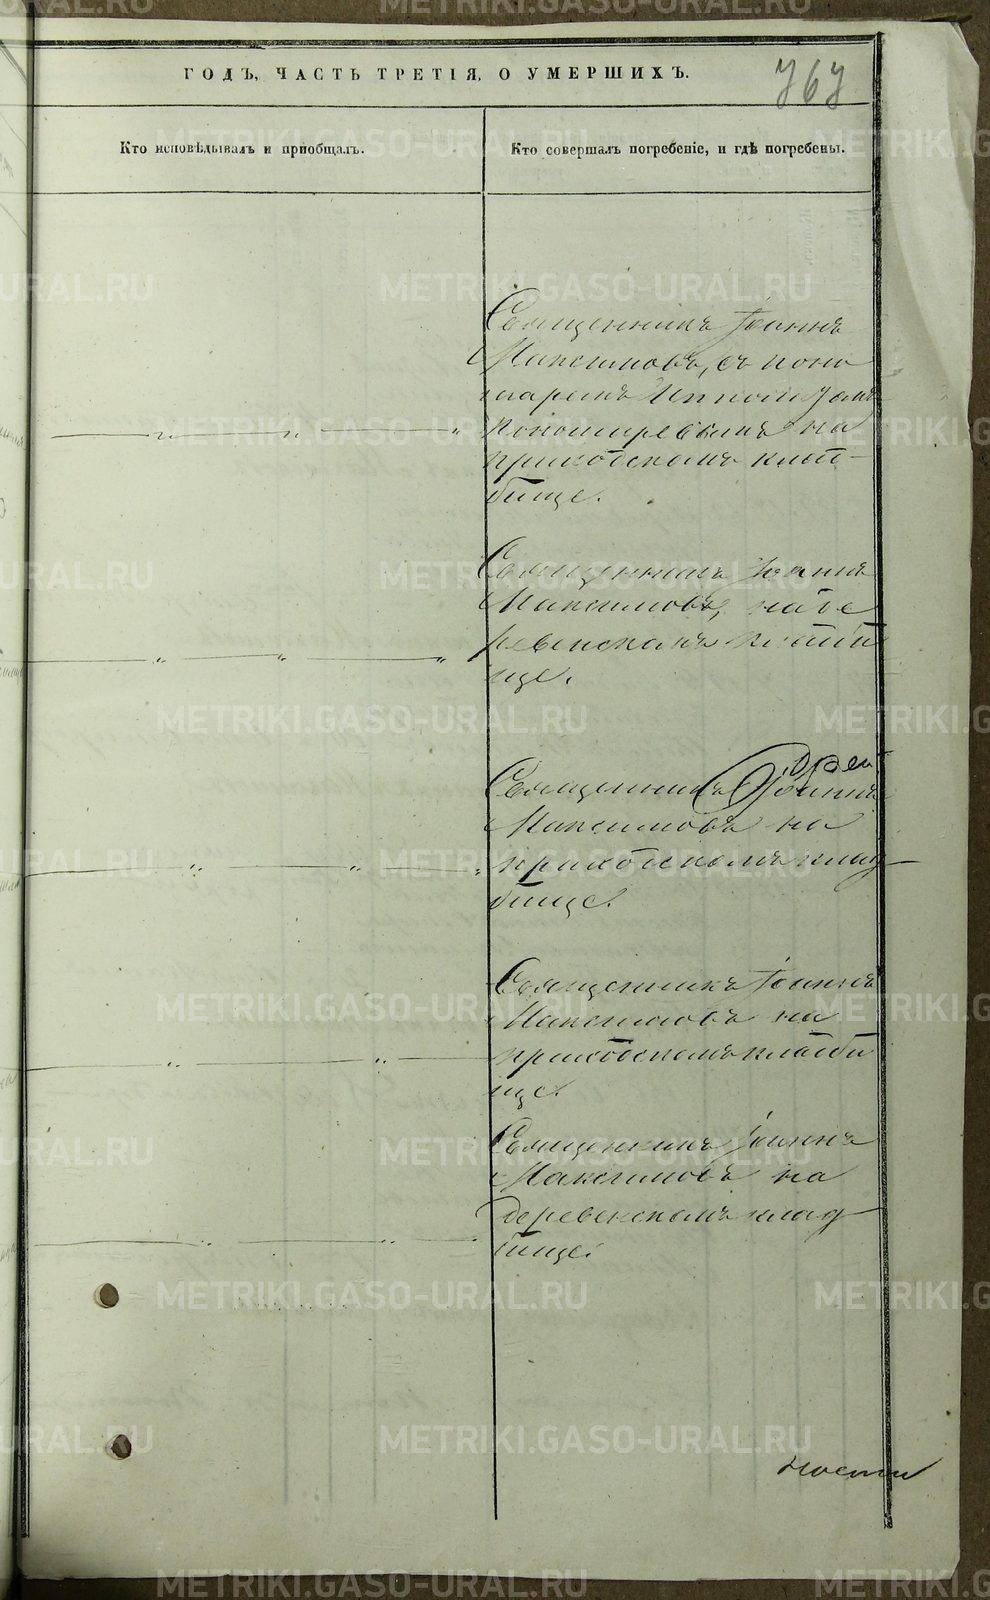 ГОДЪ, ЧАСТЬ ТРЕТІЯ, О УМЕРШИХЪ.
767
Кто исповѣдывалъ и пріобщалъ.
Кто совершалъ погребеніе, и гдѣ погребены.
Священникъ Іоаннъ
Максимовъ, съ поно
маремъ Ипполитомъ
Пономаревымъ на
приходскомъ клад-
бище.
Священникъ Іоаннъ
Максимовъ, на де
ревенскомъ кладби
ще.
Священникъ Іоаннъ
Максимовъ на
приходскомъклад
бище.
Священникъ Іоаннъ
Максимовъ на
приходскомъ кладби
ще.
Священникъ Іоаннъ
Максимовъ на
деревенскомъ клад
бище.
METRIKI.GASO-URAL.RU